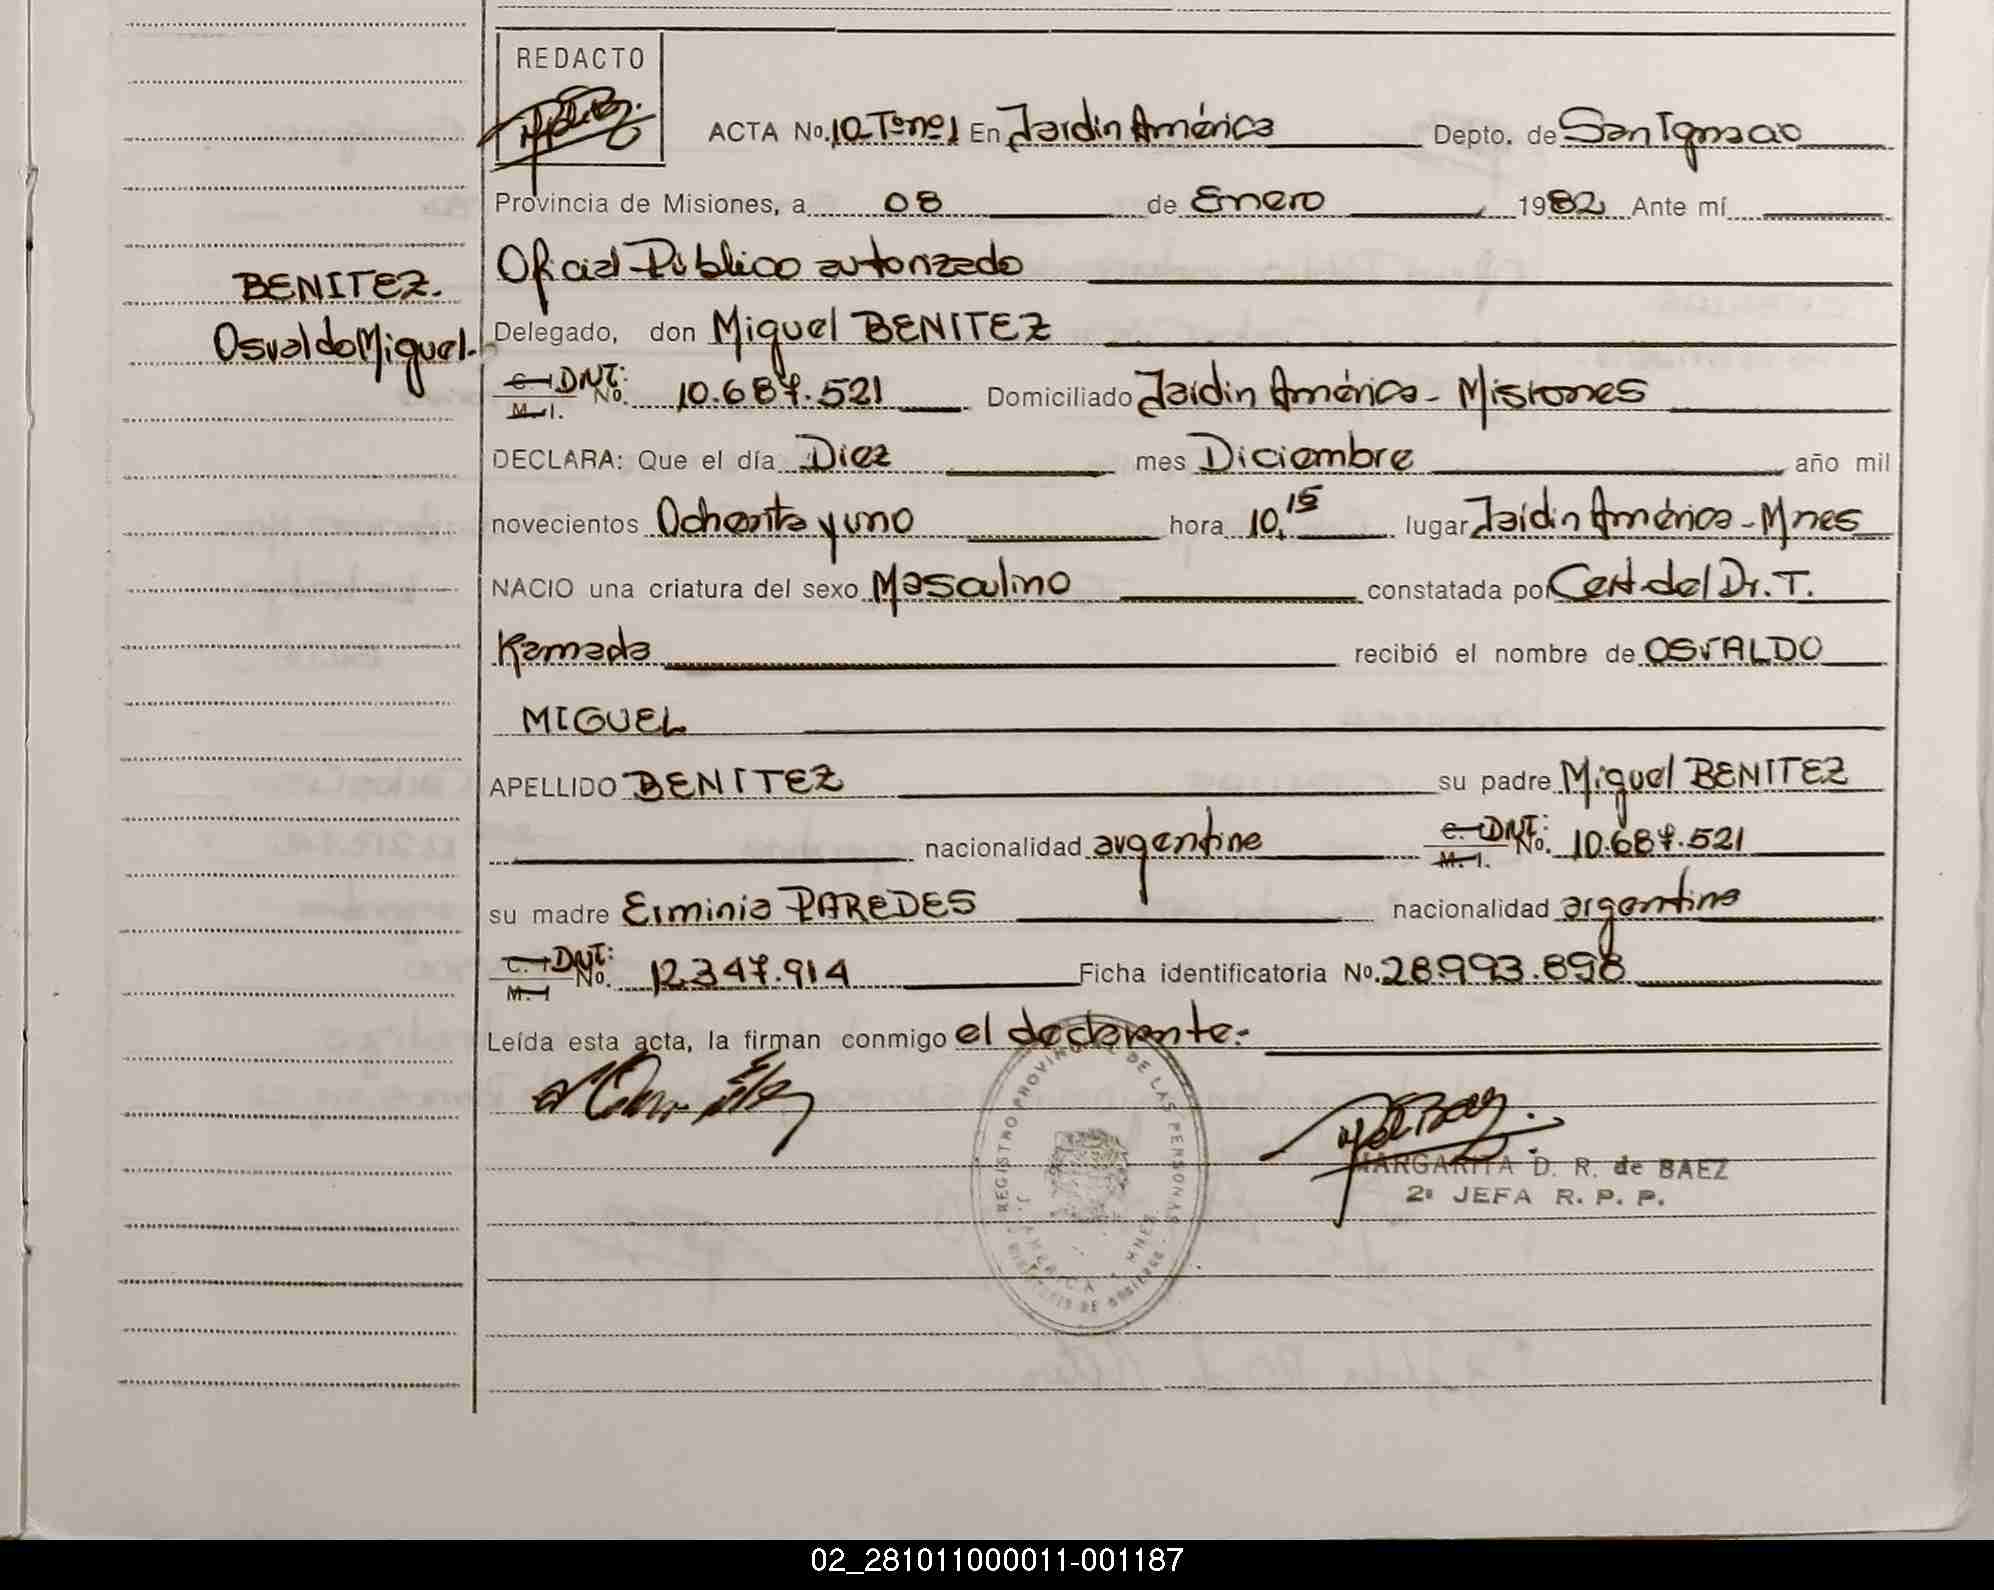 REDACTO
ACTA No. 10-Tº nº 1 En Jardin América Depto. de San Ignacio
Provincia de Misiones, a 08 de Enero 1982 Ante mí
Oficial Público autorizado
BENITEZ.
Osvaldo Miguel.-
Delegado, don Miguel BENITEZ
C. I. DNI: M. I. No. 10.687.521 Domiciliado Jardin América - Misiones
DECLARA: Que el día Diez mes Diciembre año mil
novecientos Ochenta y uno hora 10,15 lugar Jardin América - Mnes
NACIO una criatura del sexo Masculino constatada por Cert. del Dr. T.
Kamada recibió el nombre de OSVALDO
MIGUEL
APELLIDO BENITEZ su padre Miguel BENITEZ
nacionalidad argentina C. I. DNI: M. I. No. 10.687.521
su madre Erminia PAREDES nacionalidad argentina
C. I. DNI: M. I No. 12.347.914 Ficha identificatoria No. 28.993.898
Leída esta acta, la firman conmigo el declarante.-
REGISTRO PROVINCIAL DE LAS PERSONAS
J. AMERICA - MNES
MINISTERIO DE GOBIERNO
MARGARITA D. R. de BAEZ
2ª JEFA R. P. P.
02_281011000011-001187